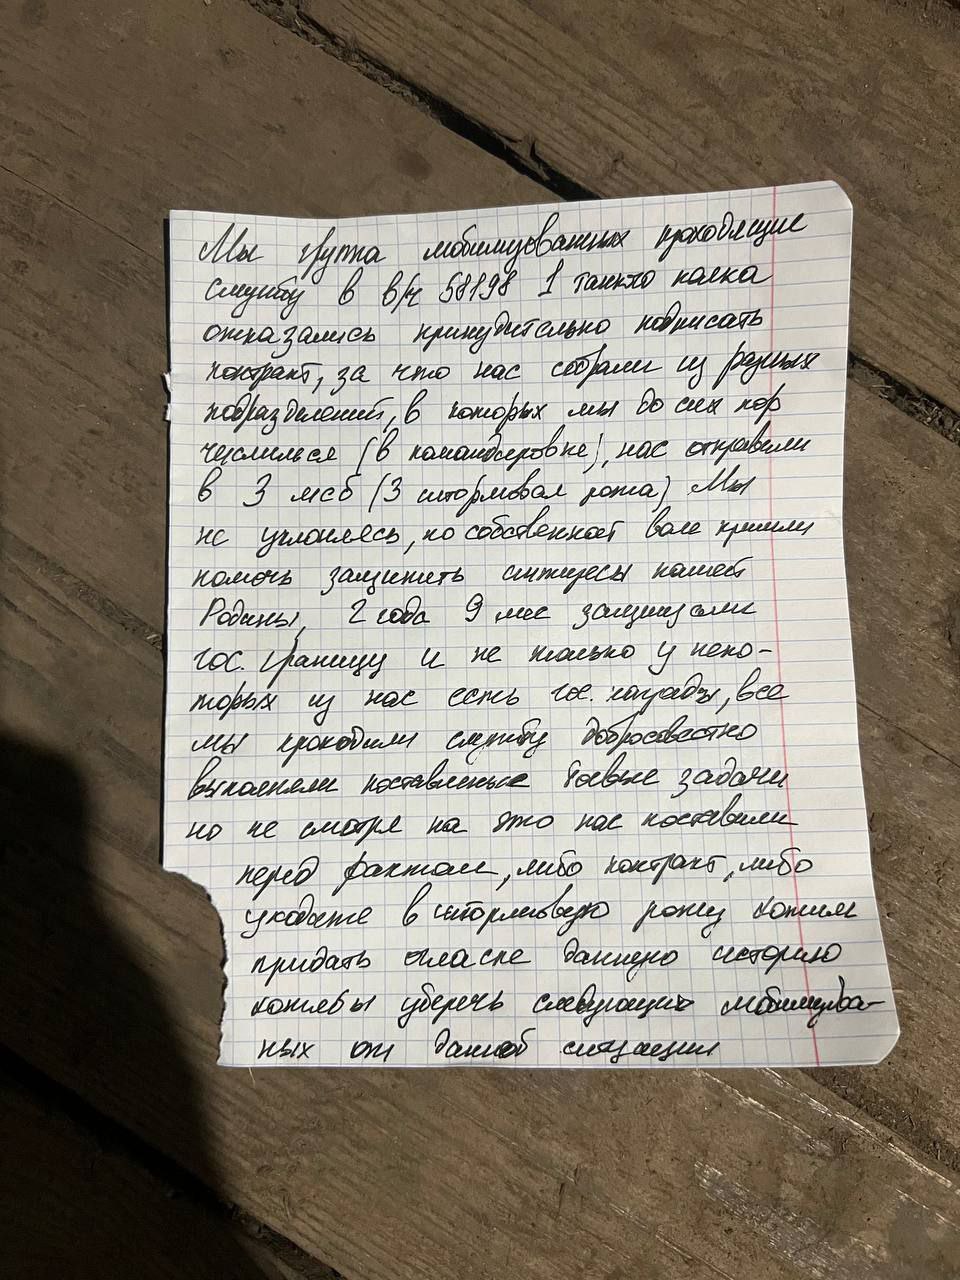 Мы группа мобилизованных проходящие
службу в в/ч 58198 1 танкго полка
отказались принудительно подписать
контракт, за что нас собрали из разных
подразделений, в которых мы до сих пор
числимся (в командировке), нас отправили
в 3 мсб (3 штормовая рота) Мы
не уклонялись, по собственной воле пришли
помочь защитить интересы нашей
Родины, 2 года 9 мес защищали
гос. границу и не только у неко-
торых из нас есть гос. награды, все
мы проходили службу добросовестно
выполняли поставленные боевые задачи
но не смотря на это нас поставили
перед фактом, либо контракт, либо
уходите в штормовую роту хотим
придать огласке данную историю
хотябы уберечь следующих мобилизова-
ных от данной ситуации